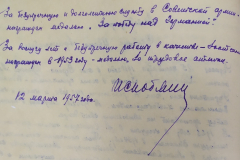 За безупречную и долголетнюю службу в Советской армии
награжден медалью „За победу над Германией".
За выслугу лет и безупречную работу в качестве
награжден в 1953 году - медалью „за трудовое отличие.
12 марта 1957 года.